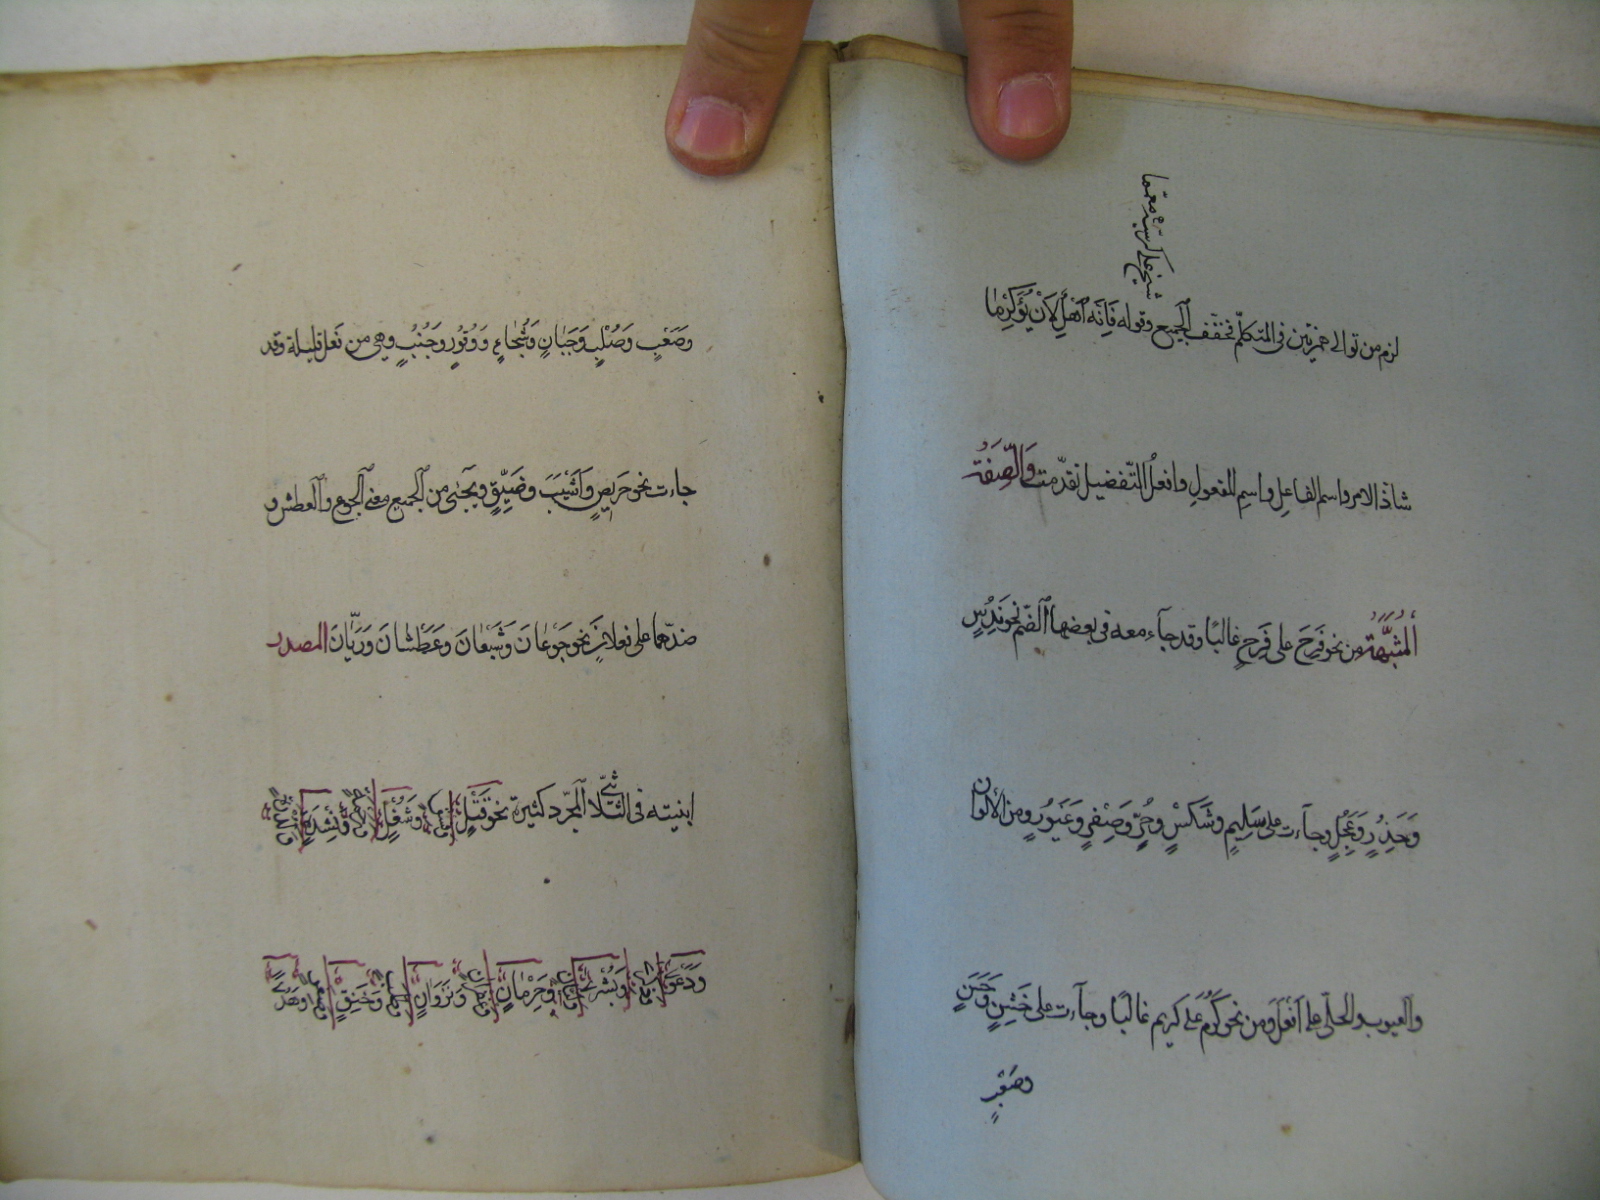 شيخ على كرسيه معمما
لزم من توالى همزتين فى المتكلّم فخفّف الجميع وقوله فَاِنَّه اَهْلٌ لِاَنْ يُؤَكْرَمَا
شاذ الامر واسم الفاعِل واسِم المفعول وافعلُ التّفضيل تقدّمت وَالصِّفَةُ
اَلْمُشَبَّهَةُ من نحو فَرِحَ على فَرِحٍ غالبًا وقد جآء معه فى بعضها الضّم نحو نَدُسٍ
وَحَذُرٍ وَعَجُلٍ وجآءت على سَلِيمٍ وشَكْسٍ وحُرٍّ وصِفْرٍ وغَيُورٍ ومن الألوان
والعيوب والحلى على اَفْعَلَ ومن نحو كَرُمَ على كريم غالبًا وجآءت على خَشِنٍ وَحَسَنٍ
وصَعْبٍ
وَصَعْبٍ وَصُلْبٍ وَجَبَانٍ وَشُجَاعٍ وَوَقُورٍ وَجُنُبٍ وهى من فَعل قليلة وقد
جاءت نحو حَرِيصٍ وَاَشْيَبَ وضَيِّقٍ ويجىٔ من الجميع بمعنى الجوع والعطش و
ضدّهما على فعلانَ نحو جَوْعَانَ وَشَبْعَانَ وعَطْشَانَ وَرَيَّانَ المصدر
ابنيته فى الثّلاثىّ المجرّد كثيرة نحو قَتْلٍ وَشُغْلٍ وَنِشْدَةٍ
وَدَعْوَى وَبُشْرَى وَحِرْمَانٍ وَنَزَوانٍ وَخَنِقٍ وَهُدًى